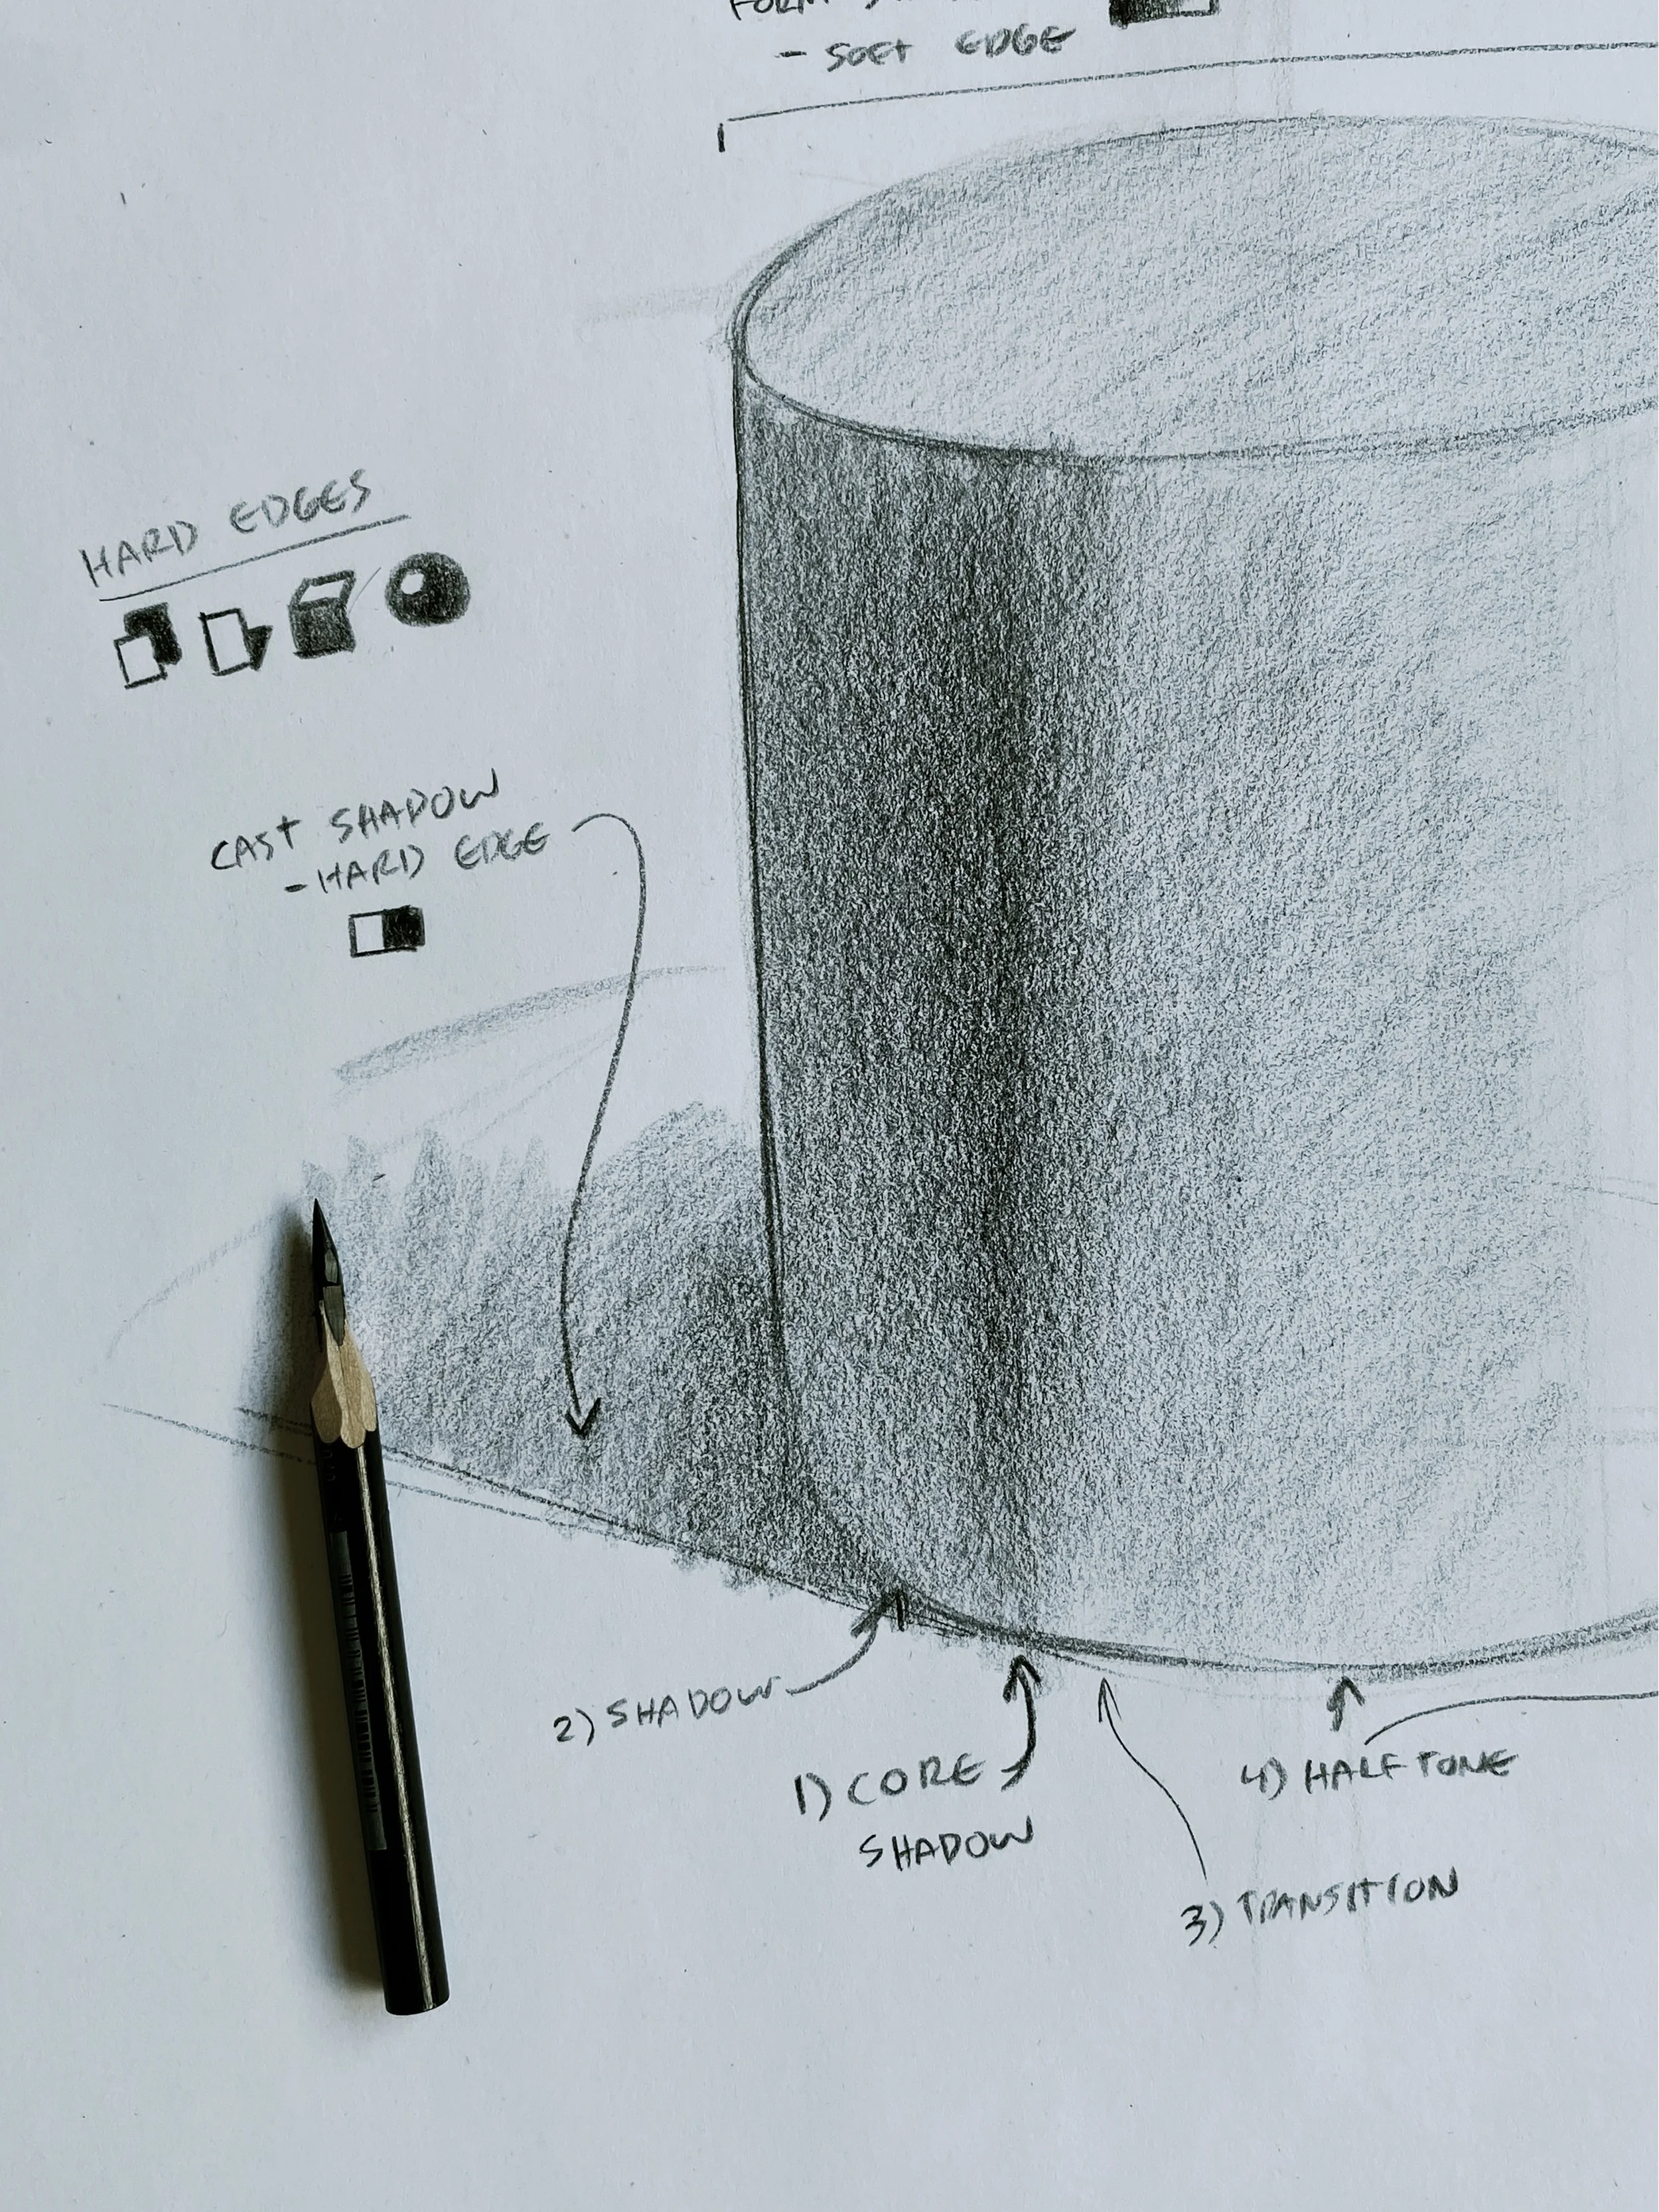 FORM
- SOFT EDGE
HARD EDGES
CAST SHADOW
- HARD EDGE
2) SHADOW
1) CORE
SHADOW
4) HALFTONE
3) TRANSITION